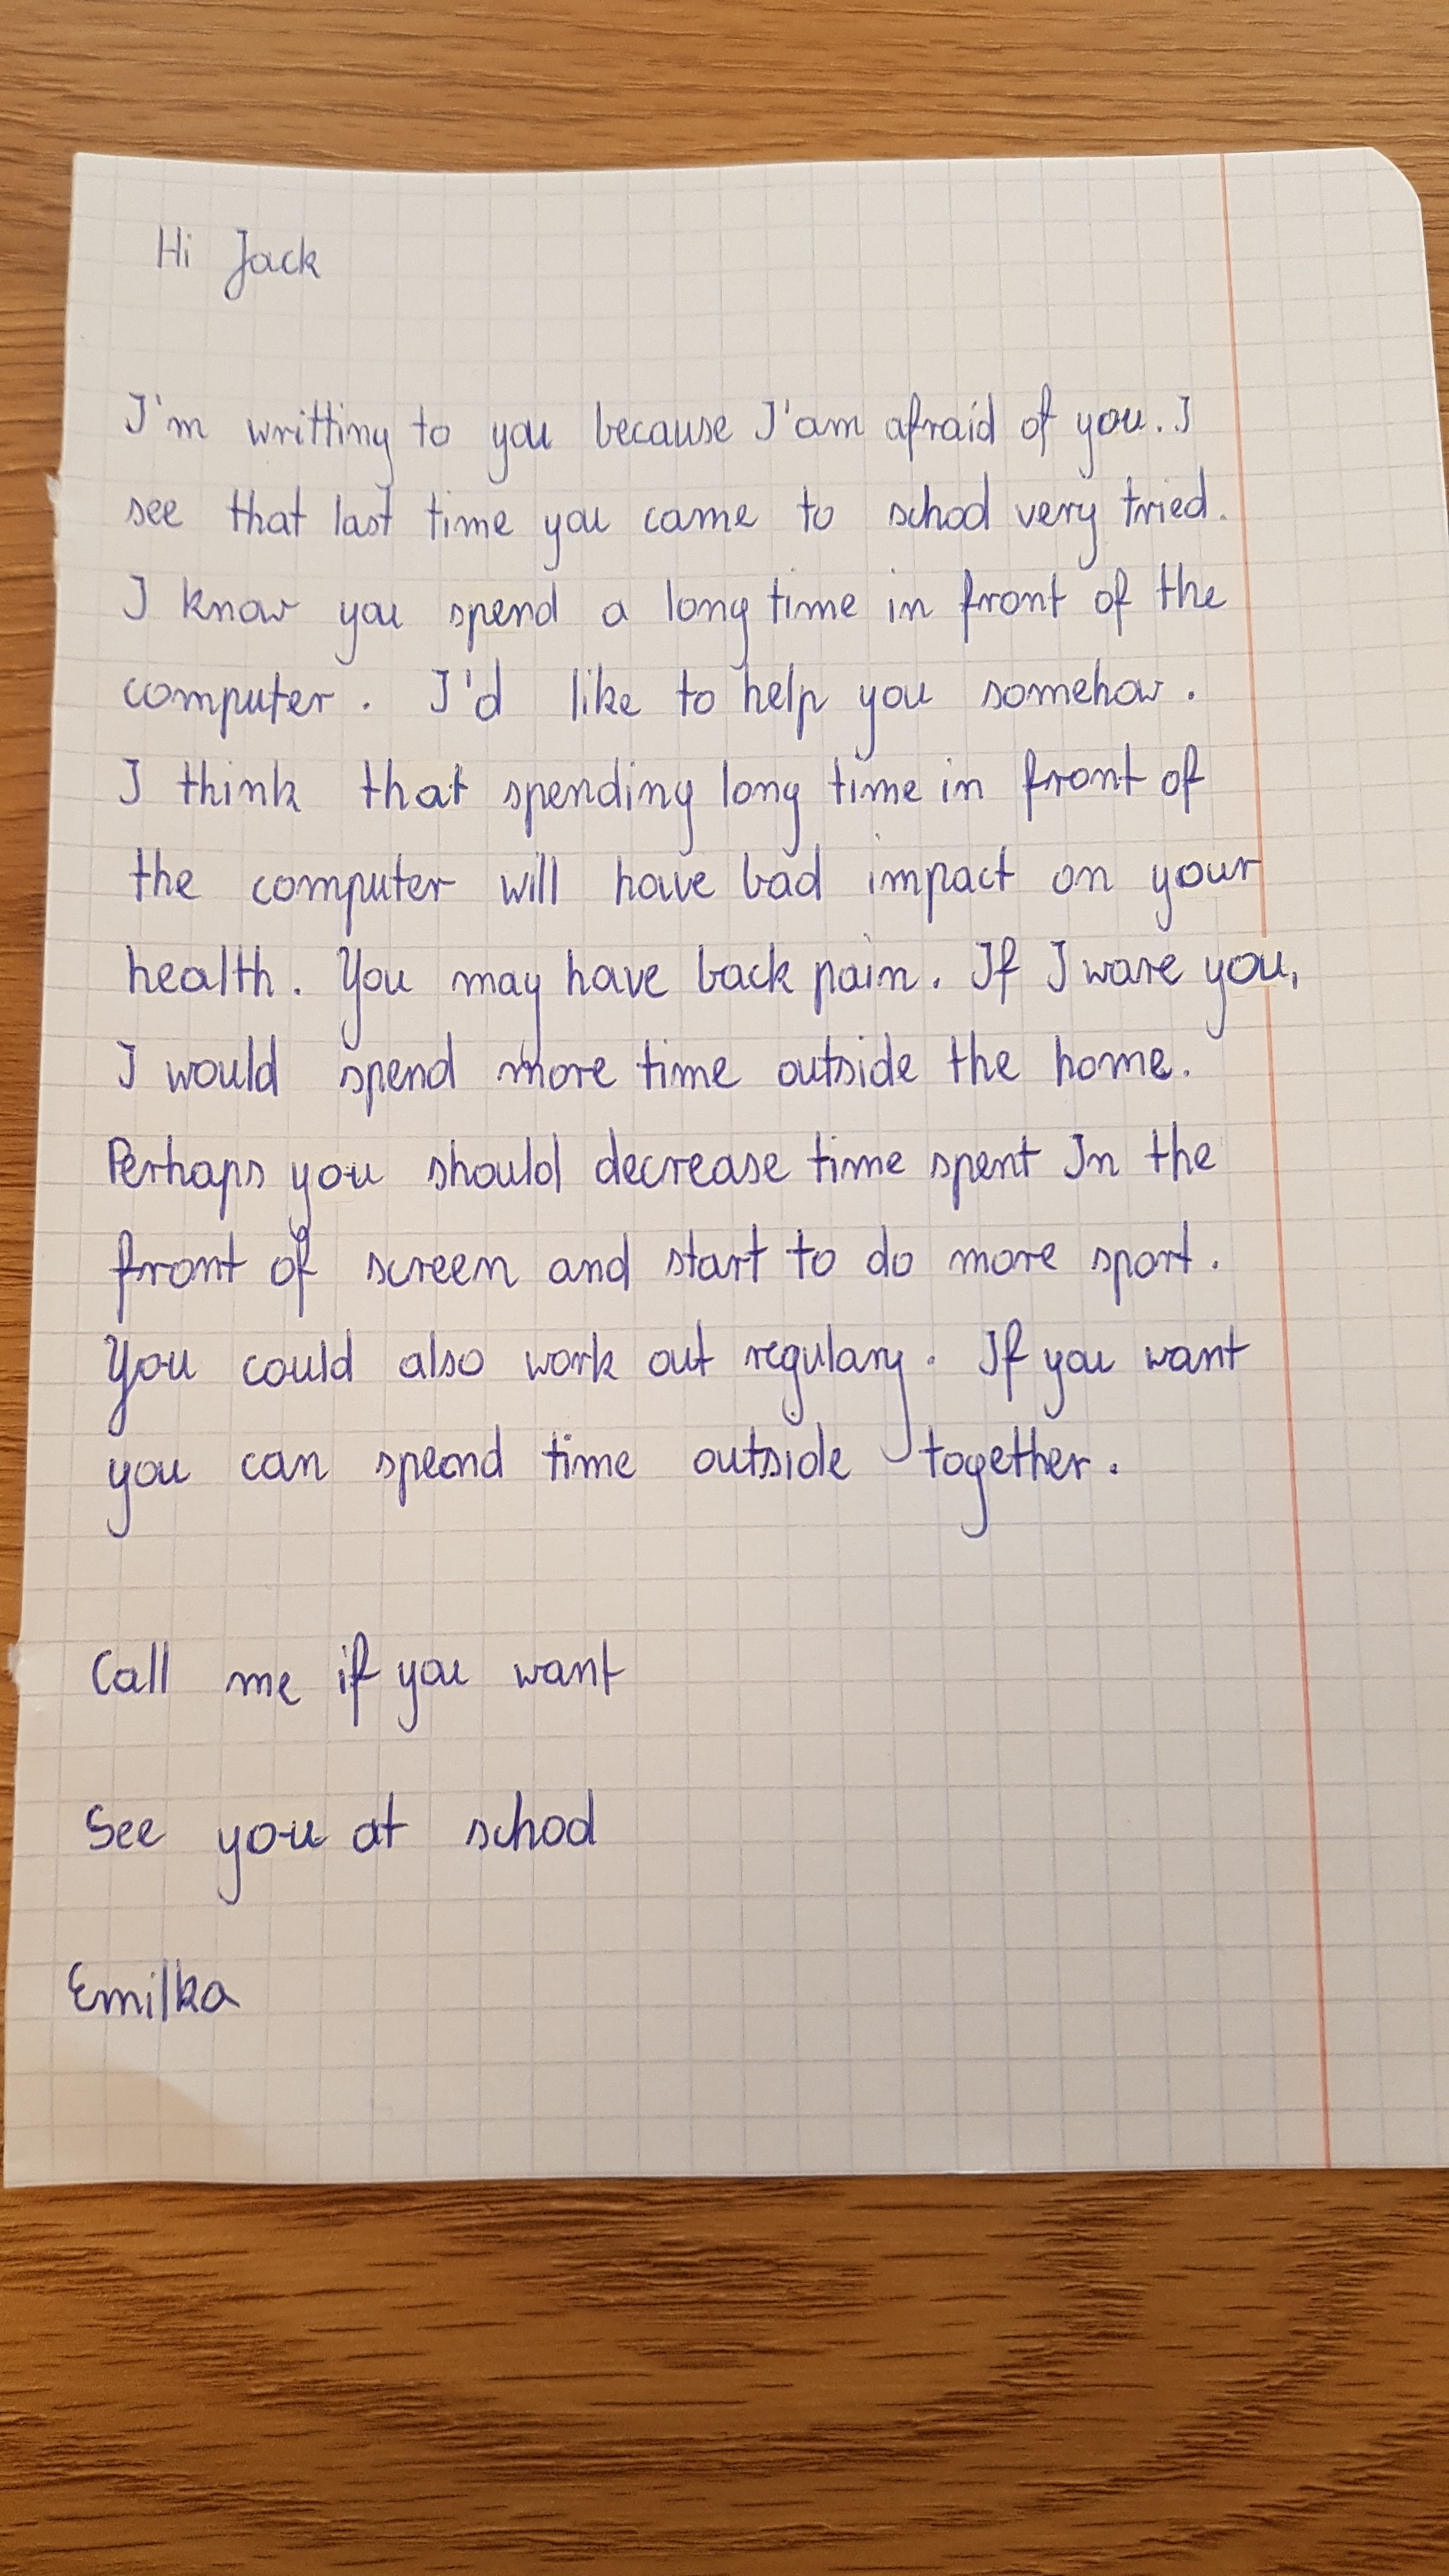 Hi Jack
I'm writting to you because I'am afraid of you. I
see that last time you came to school very tried.
I know you spend a long time in front of the
computer. I'd like to help you somehow.
I think that spending long time in front of
the computer will have bad impact on your
health. You may have back pain. If I ware you,
I would spend more time outside the home.
Perhaps you should decrease time spent In the
front of screen and start to do more sport.
You could also work out regulary. If you want
you can speand time outside together.
Call me if you want
See you at school
Emilka